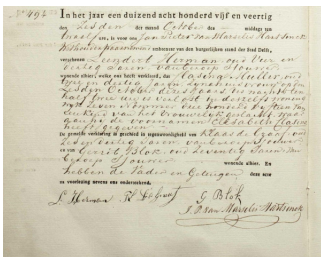 No 494
In het jaar een duizend acht honderd vijf en veertig
den Zesden der maand October des middags ten
twaalf ure, is voor ons Jan Pieter van Marselis Hartsinck
Wethouder ambtenaar van den burgerlijken stand der Stad Delft,
verschenen Leendert Herman oud Vier en
Veertig Jaren van beroep Sjouwer
wonende alhier, welke ons heeft verklaard, dat Muller oud
en dertig Jaren zonder beroep op
den Zesden October dezes Jaars des nachts ten
half twee ure is verlost in derzelver woning
een Kind van het Vrouwelijk geslacht, waar
aan hij de voornamen Elisabeth
heeft gegeven
De gemelde verklaring is geschied in tegenwoordigheid van Klaas de Graaf oud
Zes en veertig Jaren van beroep
en van Gerrit Blok oud Zeventig Jaren van
beroep Sjouwer wonende alhier. En
hebben de Vader en Getuigen deze acte
na voorlezing nevens ons onderteekend.
L. Herman K. de Graaf G Blok
J. P. van Marselis Hartsinck